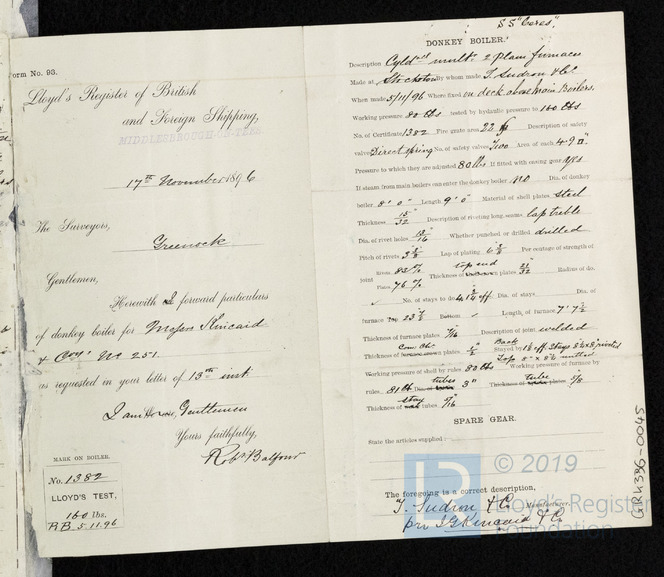 Form No. 93.
Lloyd's Register of British
and Foreign Shipping,
MIDDLESBROUGH-ON-TEES
17th November 1896
The Surveyors,
Greenock
Gentlemen,
Herewith I forward particulars
of donkey boiler for Messrs Kincaid
& Coy's No 251.
as requested on your letter of 13th inst.
I am, Gentlemen
Yours faithfully,
Robt Balfour
MARK ON BOILER.
No. 1382
LLOYD'S TEST,
160 lbs.
R.B. 5.11.96
S S "Ceres".
DONKEY BOILER.
Description Cyldrcl mult: 2 plain furnaces
Made at Stockton By whom made T. Sudron & Co.
When made 5/11/96 Where fixed on deck above main Boilers.
Working pressure 80 lbs tested by hydraulic pressure to 160 lbs
No. of Certificate 1382 Fire grate area 22 Description of safety
valves Direct spring No. of safety valves Two Area of each 4.9 "
Pressure to which they are adjusted 80 lbs. If fitted with easing gear yes
If steam from main boilers can enter the donkey boiler no Dia. of donkey
boiler 8' 0" Length 9' 0" Material of shell plates Steel
Thickness 15/32 Description of riveting long. seams lap treble
Dia. of rivet holes 13/16 Whether punched or drilled drilled
Pitch of rivets 3 Lap of plating 6 Per centage of strength of
joint Rivets 83 % Thickness of top end plates 21/32 Radius of do.
Plates 76 %
No. of stays to do Dia. of stays Dia. of
furnace Top 23 ½ Bottom Length of furnace 7' 7½
Thickness of furnace plates 7/16 Description of joint welded
Thickness of plates ½" Stayed by
Working pressure of shell by rules 82 lbs Working pressure of furnace by
rules 81 lb Dia. of tubes 3" Thickness of tube 5/8
Thickness of stay tubes 5/16
SPARE GEAR.
State the articles supplied:
The foregoing is a correct description,
T. Sudron & Co. Manufacturer.
pro J G Kincaid & Co
GRK396-0045
LR © 2019
Lloyd's Register
Foundation